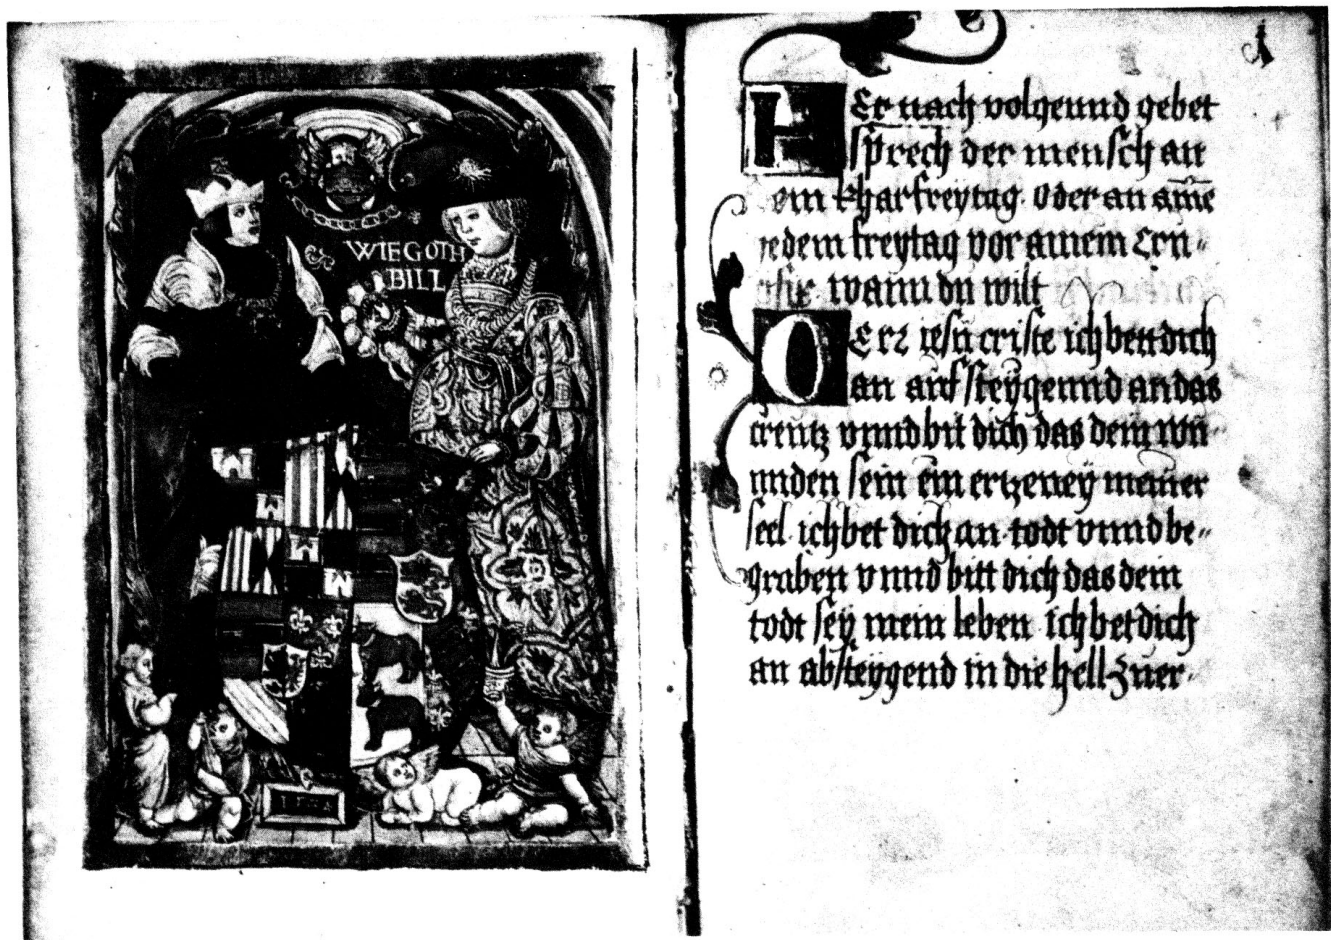 WIE GOTH
BILL
1
HEr nach volgennd gebet
sprech der mensch an
em kharfreytag. oder an aine
yedem freytag vor ainem Cru-
wann du wilt
OErr iesu criste ich bett dich
an auf steygennd an das
creutz vnnd bit dich das dein wu-
nnden sein ein ertzeney meiner
seel. ich bet dich an. todt vnnd be-
graben vnnd bitt dich das dein
todt sey mein leben ich bet dich
an absteygend in die hell. Zu er-